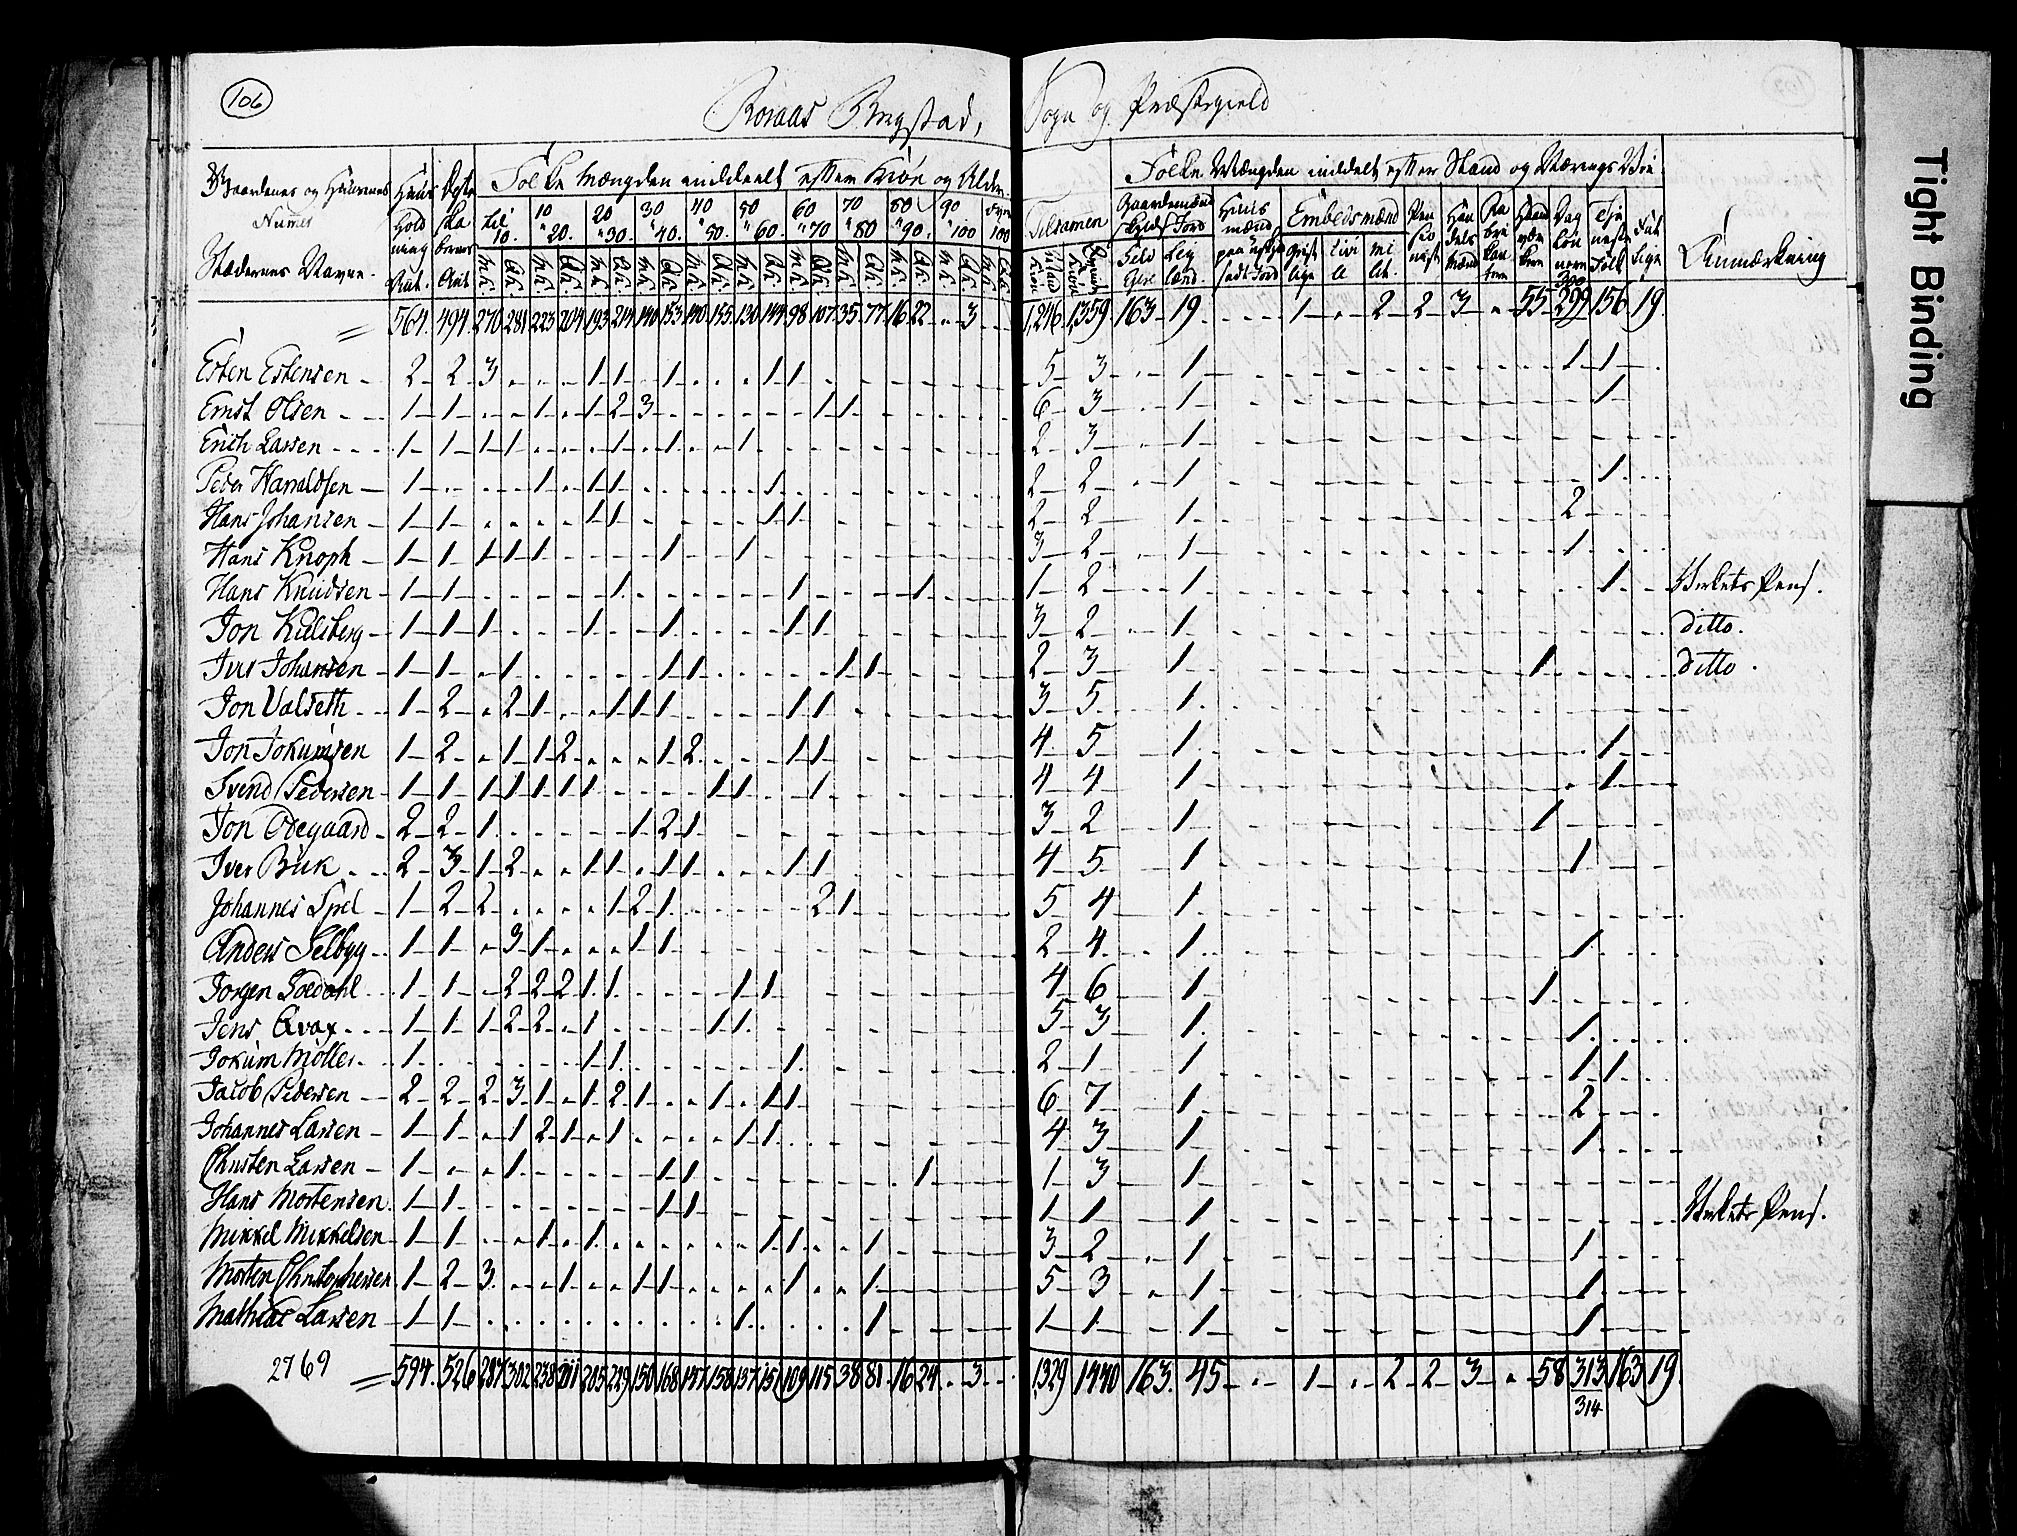 106
Roraas Bergstad,
Sogn og Præstegield
Gaardenes og Huusenes Numer
Stædernes Navne
Huus hold ning Ant.
Folke Mængden inddeelt efter Kiøn og Alder.
til 10. 10 " 20. 20 " 30. 30 " 40. 40 " 50. 50 " 60. 60 " 70 70 " 80 80 " 90. 90 " 100 100
M.k. Qk. M.k. Qk. M.k. Qk. M.k. Qk. M.k. Qk. M.k. Qk. M.k. Qk. M.k. Qk. M.k. Qk. M.k. Qk. M.k. Qk.
Tilsamen
Folke Mængden inddelt efter Stand og Nærings Vei
Gaardemænd Huus mænd Embedsmænd Pen sio nist Han dels mænd Fa bri kan tere Haand værkere Dag løn nere Tje neste Folk Fat tige
Selv Eier Leilænd. Geistlige Civi le Mi lit.
Anmærkning
300
564 494 270 281 223 204 193 214 140 153 140 155 130 144 98 107 35 77 16 22 3 1,246 1359 163 19 1 2 2 3 55 299 156 19
Esten Estensen 2 2 3 1 1 1 1 1 5 3 1 1 1
Ernst Olsen 1 1 1 1 2 3 1 1 6 3 1 1
Erich Larsen 1 1 1 1 1 1 1 2 3 1
Peder Harraldsen 1 1 1 1 1 2 2 1 1
Hans Johansen 1 1 1 1 1 1 2 2 1 2
Hans Knoph 1 1 1 1 1 1 1 3 2 1 1
Hans Knudsen 1 1 1 1 1 1 2 1 1 Verkets Pens.
Jon Kulsberg 1 1 1 1 1 1 1 3 2 1 ditto.
Johansen 1 1 1 1 1 1 1 2 3 1 1 ditto.
Jon Valseth 1 2 2 1 1 1 1 1 1 3 5 1
Jon Jokumsen 1 2 1 1 2 1 2 1 1 4 5 1 1
Svend Pedersen 1 1 1 1 1 1 1 1 1 1 4 4 1 1
Jon Ødegaard 2 2 1 1 2 1 3 2 1 1
Iver Buk 2 3 1 2 1 1 1 1 1 1 4 5 1 1
Johannes Spel 1 2 2 1 2 1 2 1 5 4 1
Anders Selbyg 1 1 3 1 1 1 2 4 1 1
Jorgen 1 1 2 2 2 1 1 1 1 4 6 1 1
Jens Qvax 1 1 1 2 2 1 1 1 5 3 1 1
Jokum Moller 1 1 1 1 2 1 1 1 1
Jacob Pedersen 2 2 2 3 1 1 2 1 1 1 1 6 7 1 2
Johannes Larsen 1 1 1 2 1 1 1 1 4 3 1 1
Christen Larsen 1 1 1 1 1 1 3 1
Hans Mortensen 1 1 1 1 1 1 1 Verkets Pens.
Mikkel Mikkelsen 1 1 1 1 1 1 1 3 2 1 1
Morten Christophersen 1 2 3 1 1 1 1 1 5 3 1 1
Mathias Larsen 1 1 1 1 1 1 1 1
2769
594 526 287 302 238 211 205 229 150 168 147 158 137 151 109 115 38 81 16 24 3 1,329 1440 163 45 1 2 2 3 58 313 163 19
314
Tight Binding